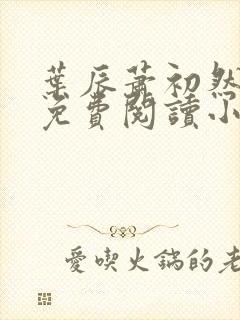 葉辰蕭初然
免費閱讀小
愛喫火鍋的老